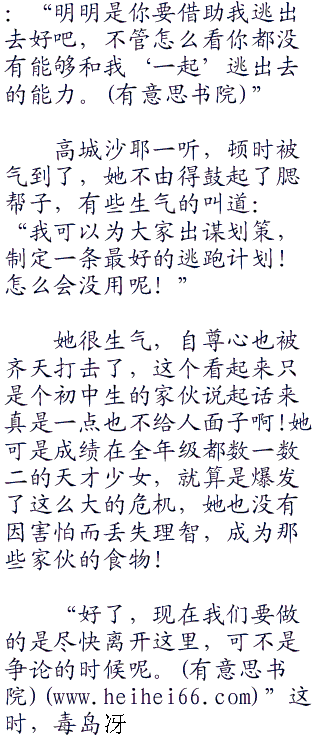 ：“明明是你要借助我逃出
去好吧，不管怎么看你都没
有能够和我‘一起’逃出去
的能力。(有意思书院)”
高城沙耶一听，顿时被
气到了，她不由得鼓起了腮
帮子，有些生气的叫道：
“我可以为大家出谋划策，
制定一条最好的逃跑计划！
怎么会没用呢！”
她很生气，自尊心也被
齐天打击了，这个看起来只
是个初中生的家伙说起话来
真是一点也不给人面子啊!她
可是成绩在全年级都数一数
二的天才少女，就算是爆发
了这么大的危机，她也没有
因害怕而丢失理智，成为那
些家伙的食物！
“好了，现在我们要做
的是尽快离开这里，可不是
争论的时候呢。(有意思书
院)(www.heihei66.com)”这
时，毒岛冴